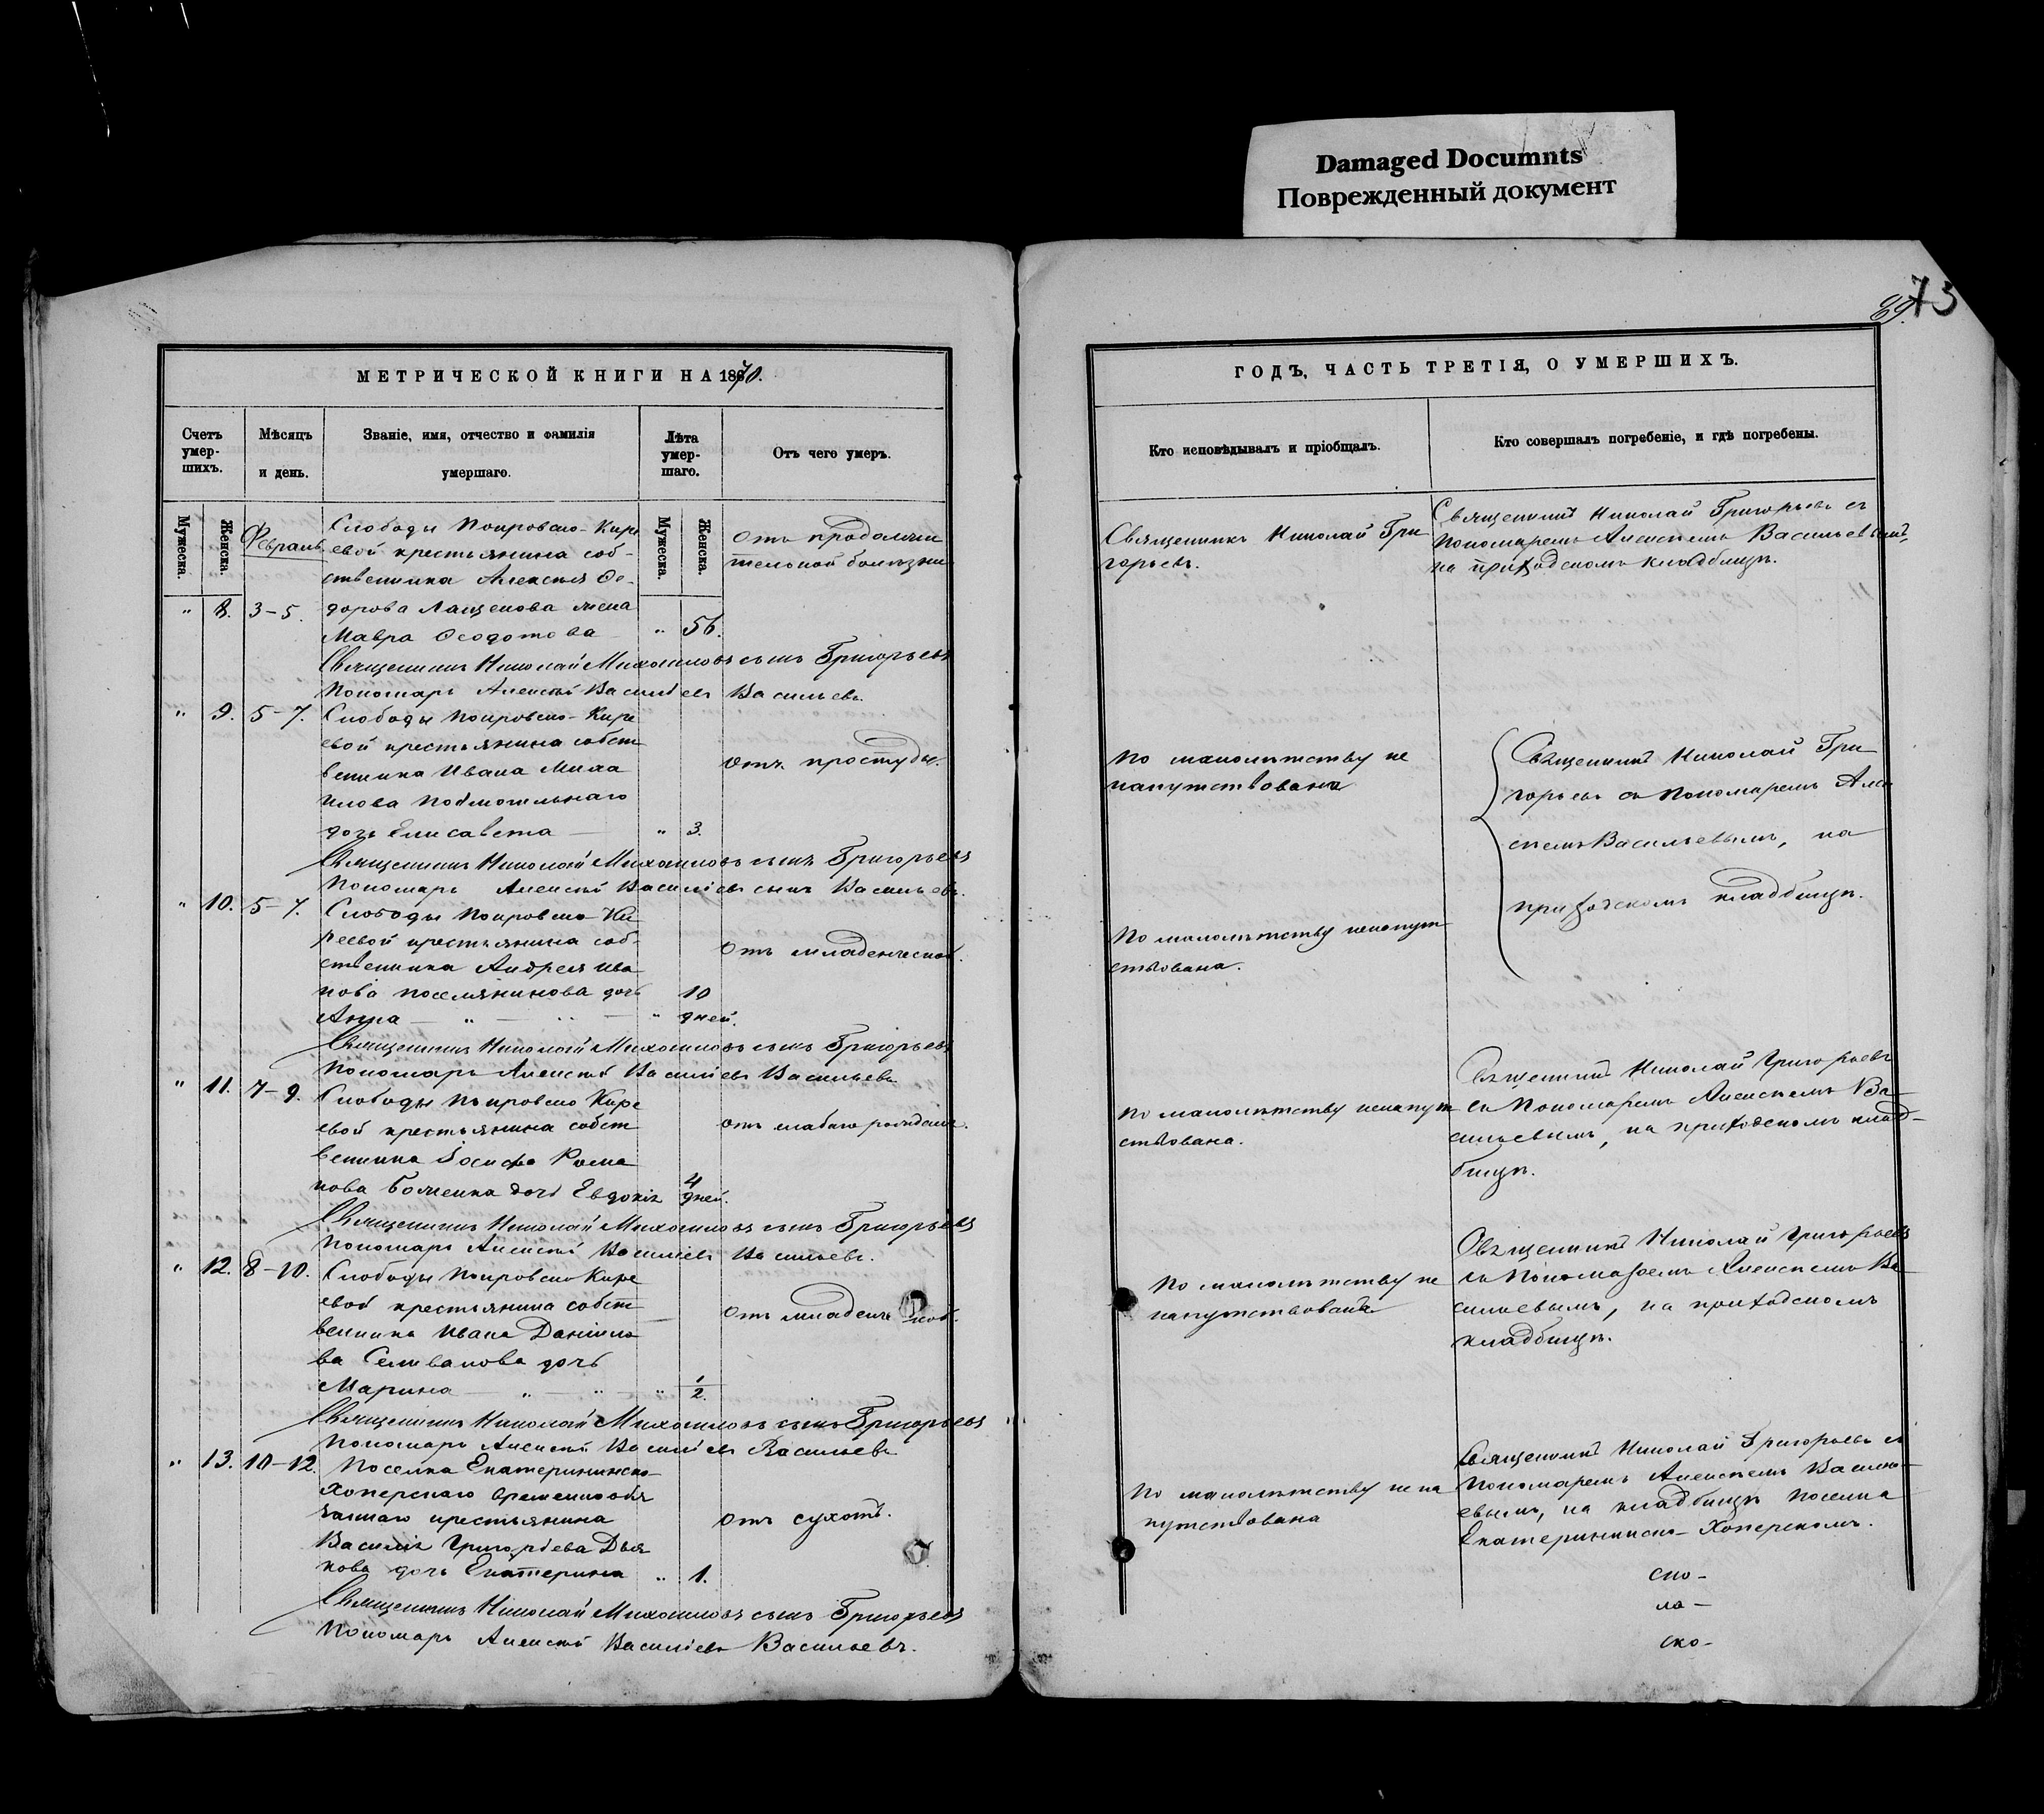 Damaged Documnts
Поврежденный документ
89.
73
МЕТРИЧЕСКОЙ КНИГИ НА 1870.
Счетъ умер-шихъ.
Мѣсяцъ и день.
Званіе, имя, отчество и фамилія умершаго.
Лѣта умер-шаго.
Отъ чего умеръ.
Мужеска.
Женска.
Февраль
Мужеска.
Женска.
Слободы Покровско-Кире
евой крестьянина соб-
ственника Алексѣя Ѳе-
" 8. 3-5. дорова Лащенова жена
Мавра Ѳеодотова " 56.
Отъ продолжи
тельной болѣзни
Священникъ Николай Михаиловъ сынъ Григорьевъ
Пономарь Алексѣй Василіевъ Васильевъ.
" 9. 5-7. Слободы Покровско-Кире
евой крестьянина собст
венника Ивана Миха
илова
дочь Елисавета — " 3.
Отъ простуды.
Священникъ Николай Михаиловъ сынъ Григорьевъ
Пономарь Алексѣй Василіевъ сынъ Васильевъ.
" 10. 5-7. Слободы Покровско-Ки
реевой крестьянина соб-
ственника Андрея Ива
нова Поселянинова дочь 10
Анна — " — " — " дней.
Отъ младенческой.
Священникъ Николай Михаиловъ сынъ Григорьевъ
Пономарь Алексѣй Василіевъ Васильевъ
" 11. 7-9. Слободы Покровско Кире
евой крестьянина собст
венника Іосифа Рома
нова Боженка дочь Евдокія 4 дней.
Отъ слабаго рожденія.
Священникъ Николай Михаиловъ сынъ Григорьевъ
Пономарь Алексѣй Василіевъ Васильевъ.
" 12. 8-10. Слободы Покровско Кире
евой крестьянина собст
венника Ивана Даніило
ва Селиванова дочь
Марина — " — " — " 1/2.
Отъ младенч кой.
Священникъ Николай Михаиловъ сынъ Григорьевъ
Пономарь Алексѣй Василіевъ Васильевъ
" 13. 10-12. Поселка Екатерининско-
Хоперскаго временнообя
заннаго крестьянина
Василія Григорьева Дья
кова дочь Екатерина " 1.
Отъ сухотъ.
Священникъ Николай Михаиловъ сынъ Григорьевъ
Пономарь Алексѣй Василіевъ Васильевъ.
ГОДЪ, ЧАСТЬ ТРЕТІЯ, О УМЕРШИХЪ.
Кто исповѣдывалъ и пріобщалъ.
Кто совершалъ погребеніе, и гдѣ погребены.
Священникъ Николай Гри
горьевъ.
Священникъ Николай Григорьевъ съ
Пономаремъ Алексѣемъ Васильевымъ,
на приходскомъ кладбищѣ.
По малолѣтству не
напутствована
Священникъ Николай Гри
горьевъ съ Пономаремъ Але
ксѣемъ Васильевымъ, на
приходскомъ кладбищѣ.
По малолѣтству ненапут
ствована.
По малолѣтству ненапут
ствована.
Священникъ Николай Григорьевъ
съ Пономаремъ Алексѣемъ Ва-
сильевымъ, на приходскомъ клад-
бищѣ.
По малолѣтству не
напутствована
Священникъ Николай Григорьевъ
съ Пономаремъ Алексѣемъ Ва
сильевымъ, на приходскомъ
кладбищѣ.
По малолѣтству не на
путствована
Священникъ Николай Григорьевъ съ
Пономаремъ Алексѣемъ Василь-
евымъ, на кладбищѣ поселка
Екатерининско-Хоперскомъ.
ско-